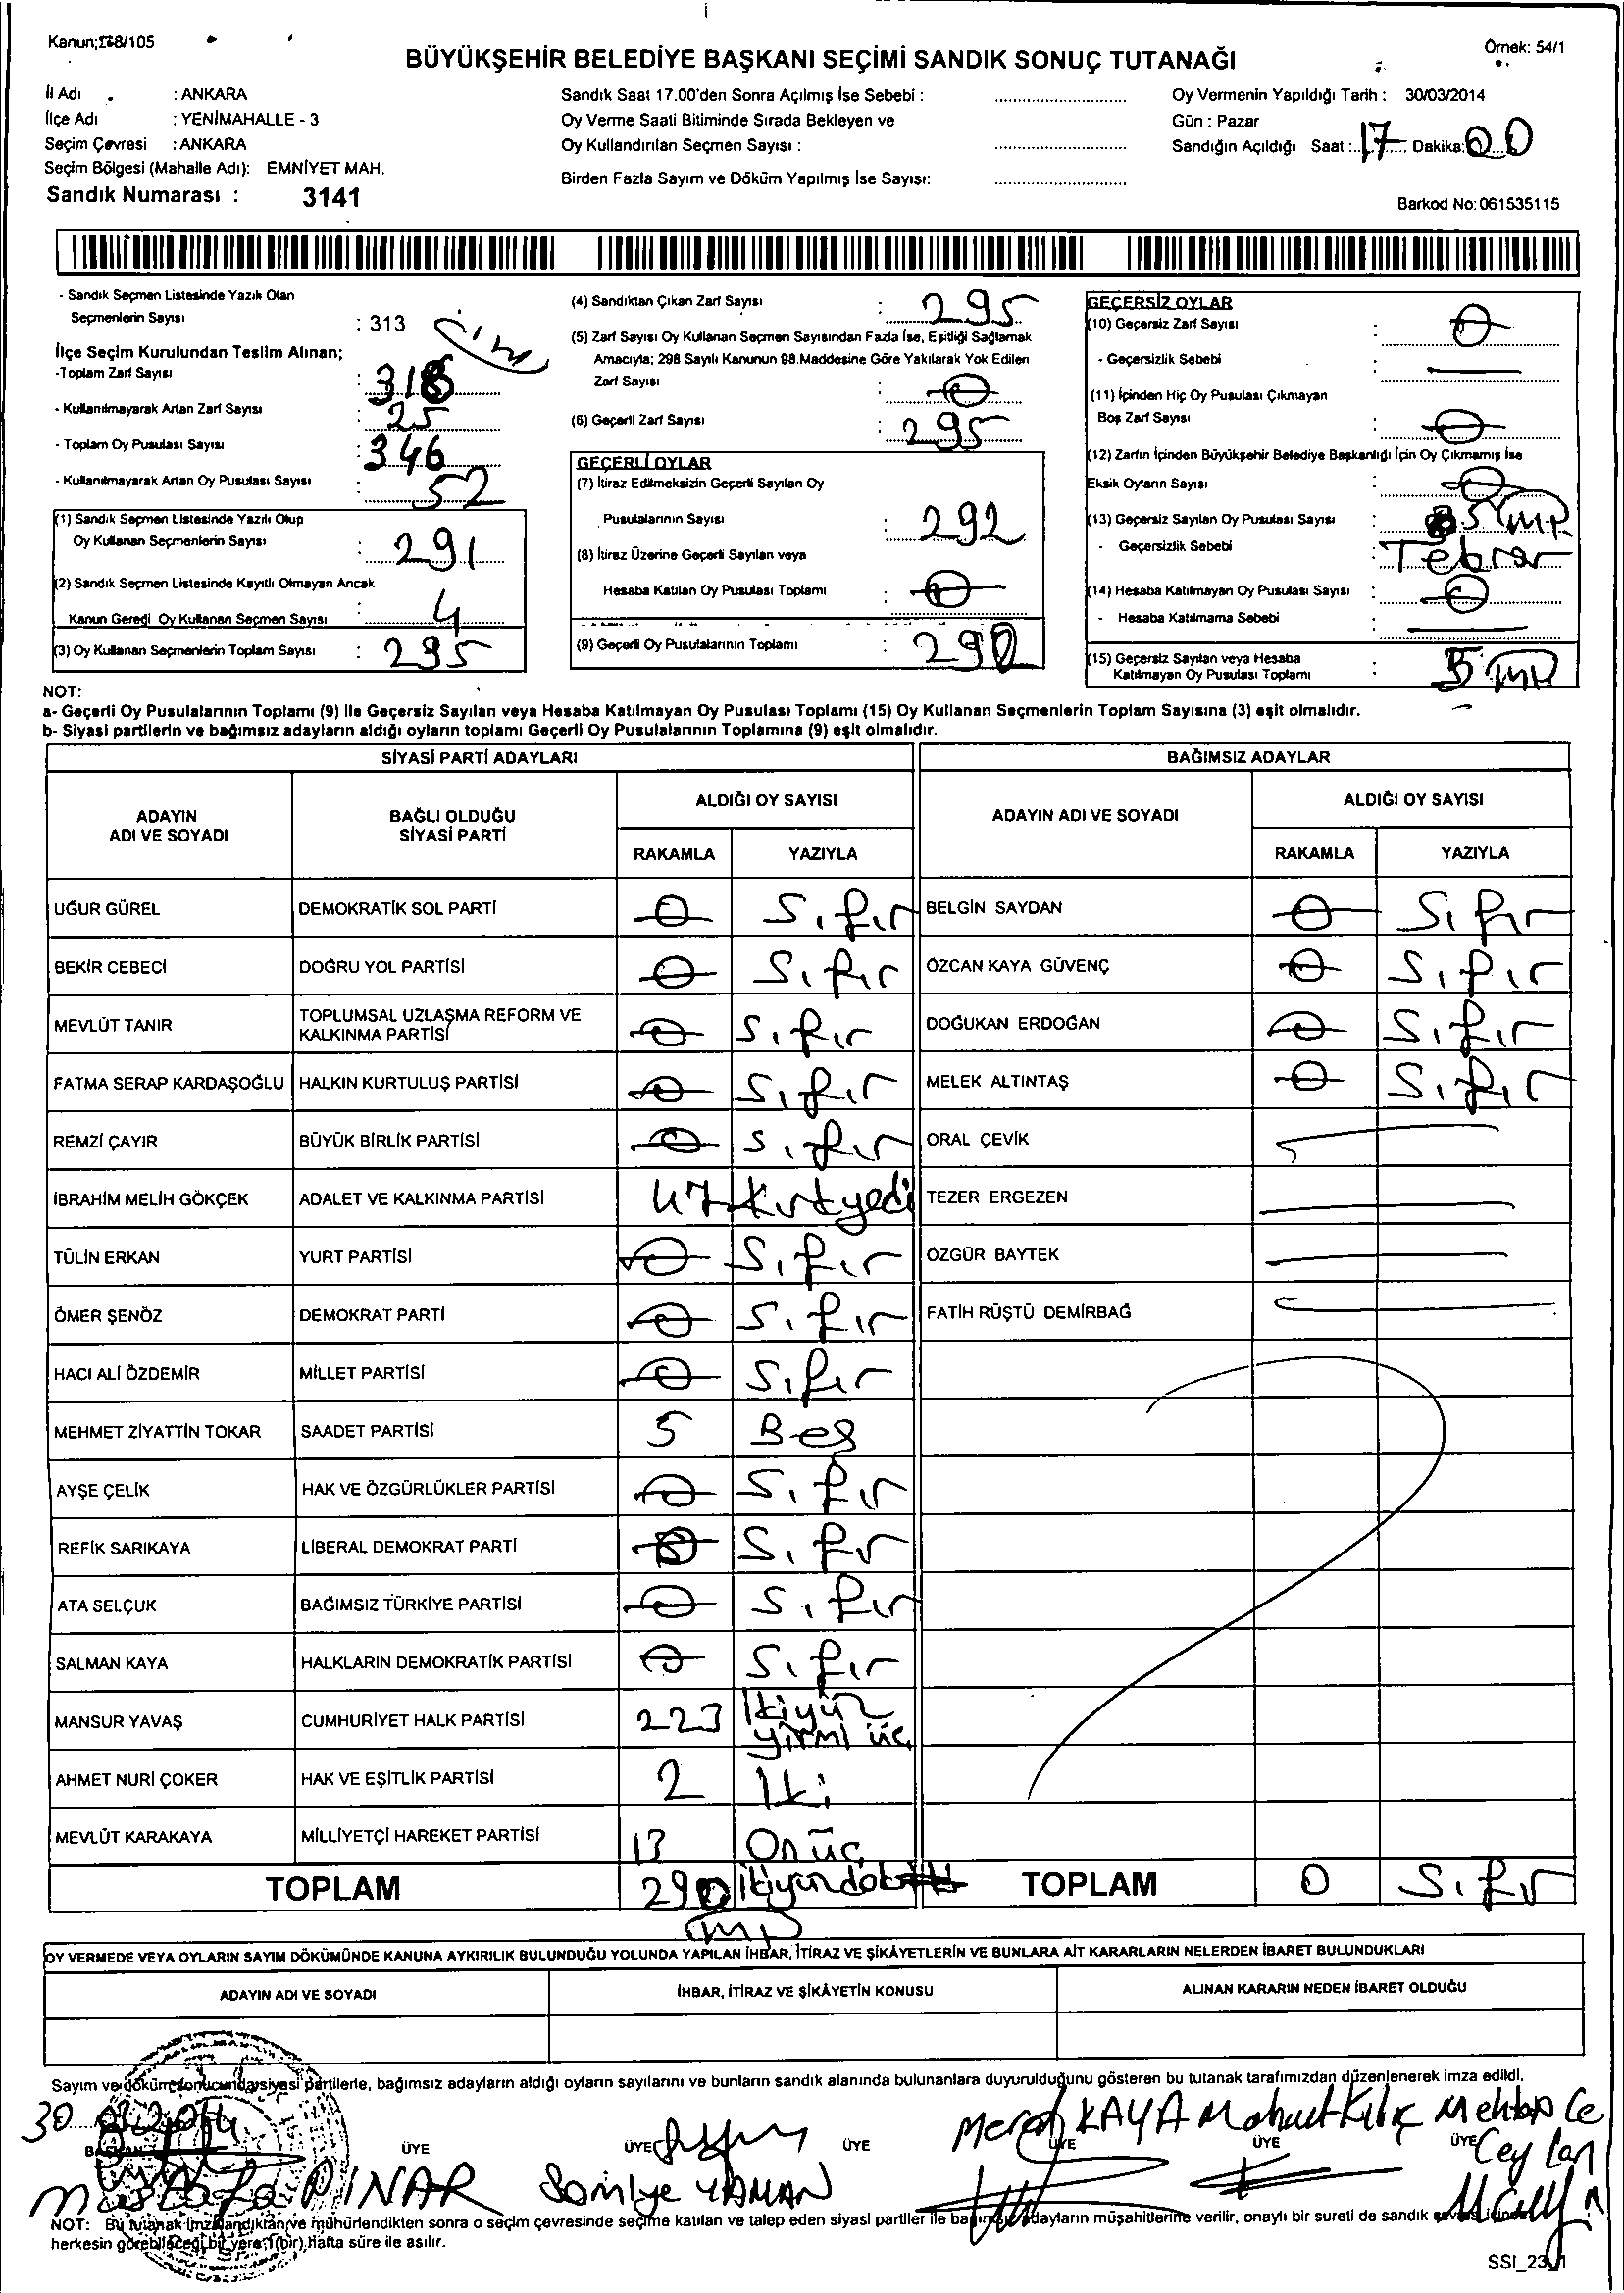 Kanun;298/105
Örnek: 54/1
BÜYÜKŞEHİR BELEDİYE BAŞKANI SEÇİMİ SANDIK SONUÇ TUTANAĞI
İl Adı : ANKARA
İlçe Adı : YENİMAHALLE - 3
Seçim Çevresi : ANKARA
Seçim Bölgesi (Mahalle Adı): EMNİYET MAH.
Sandık Numarası : 3141
Sandık Saat 17.00'den Sonra Açılmış İse Sebebi :
Oy Verme Saati Bitiminde Sırada Bekleyen ve
Oy Kullandırılan Seçmen Sayısı :
Birden Fazla Sayım ve Döküm Yapılmış İse Sayısı:
Oy Vermenin Yapıldığı Tarih : 30/03/2014
Gün : Pazar
Sandığın Açıldığı Saat : 17 Dakika: 00
Barkod No: 061535115
- Sandık Seçmen Listesinde Yazılı Olan
Seçmenlerin Sayısı : 313
İlçe Seçim Kurulundan Teslim Alınan;
-Toplam Zarf Sayısı : 318
- Kullanılmayarak Artan Zarf Sayısı : 25
- Toplam Oy Pusulası Sayısı : 346
- Kullanılmayarak Artan Oy Pusulası Sayısı : 52
(1) Sandık Seçmen Listesinde Yazılı Olup
Oy Kullanan Seçmenlerin Sayısı : 291
(2) Sandık Seçmen Listesinde Kayıtlı Olmayan Ancak
Kanun Geredi Oy Kullanan Seçmen Sayısı : 4
(3) Oy Kullanan Seçmenlerin Toplam Sayısı : 295
(4) Sandıktan Çıkan Zarf Sayısı : 295
(5) Zarf Sayısı Oy Kullanan Seçmen Sayısından Fazla İse, Eşitliği Sağlamak
Amacıyla; 298 Sayılı Kanunun 98.Maddesine Göre Yakılarak Yok Edilen
Zarf Sayısı : 0
(6) Geçerli Zarf Sayısı : 295
GEÇERLİ OYLAR
(7) İtiraz Edilmeksizin Geçerli Sayılan Oy
Pusulalarının Sayısı : 292
(8) İtiraz Üzerine Geçerli Sayılan veya
Hesaba Katılan Oy Pusulası Toplamı : 0
(9) Geçerli Oy Pusulalarının Toplamı : 290
GEÇERSİZ OYLAR
(10) Geçersiz Zarf Sayısı : 0
- Geçersizlik Sebebi :
(11) İçinden Hiç Oy Pusulası Çıkmayan
Boş Zarf Sayısı : 0
(12) Zarfın İçinden Büyükşehir Belediye Başkanlığı İçin Oy Çıkmamış İse
Eksik Oyların Sayısı : 0
(13) Geçersiz Sayılan Oy Pusulası Sayısı : 5
- Geçersizlik Sebebi :
(14) Hesaba Katılmayan Oy Pusulası Sayısı : 0
- Hesaba Katılmama Sebebi :
(15) Geçersiz Sayılan veya Hesaba
Katılmayan Oy Pusulası Toplamı : 5
NOT:
a- Geçerli Oy Pusulalarının Toplamı (9) İle Geçersiz Sayılan veya Hesaba Katılmayan Oy Pusulası Toplamı (15) Oy Kullanan Seçmenlerin Toplam Sayısına (3) eşit olmalıdır.
b- Siyasi partilerin ve bağımsız adayların aldığı oyların toplamı Geçerli Oy Pusulalarının Toplamına (9) eşit olmalıdır.
SİYASİ PARTİ ADAYLARI BAĞIMSIZ ADAYLAR
ADAYIN ADI VE SOYADI BAĞLI OLDUĞU SİYASİ PARTİ ALDIĞI OY SAYISI ADAYIN ADI VE SOYADI ALDIĞI OY SAYISI
RAKAMLA YAZIYLA RAKAMLA YAZIYLA
UĞUR GÜREL DEMOKRATİK SOL PARTİ 0 Sıfır BELGİN SAYDAN 0 Sıfır
BEKİR CEBECİ DOĞRU YOL PARTİSİ 0 Sıfır ÖZCAN KAYA GÜVENÇ 0 Sıfır
MEVLÜT TANIR TOPLUMSAL UZLAŞMA REFORM VE KALKINMA PARTİSİ 0 Sıfır DOĞUKAN ERDOĞAN 0 Sıfır
FATMA SERAP KARDAŞOĞLU HALKIN KURTULUŞ PARTİSİ 0 Sıfır MELEK ALTINTAŞ 0 Sıfır
REMZİ ÇAYIR BÜYÜK BİRLİK PARTİSİ 0 Sıfır ORAL ÇEVİK
İBRAHİM MELİH GÖKÇEK ADALET VE KALKINMA PARTİSİ 47 Kırkyedi TEZER ERGEZEN
TÜLİN ERKAN YURT PARTİSİ 0 Sıfır ÖZGÜR BAYTEK
ÖMER ŞENÖZ DEMOKRAT PARTİ 0 Sıfır FATİH RÜŞTÜ DEMİRBAĞ
HACI ALİ ÖZDEMİR MİLLET PARTİSİ 0 Sıfır
MEHMET ZİYATTİN TOKAR SAADET PARTİSİ 5 Beş
AYŞE ÇELİK HAK VE ÖZGÜRLÜKLER PARTİSİ 0 Sıfır
REFİK SARIKAYA LİBERAL DEMOKRAT PARTİ 0 Sıfır
ATA SELÇUK BAĞIMSIZ TÜRKİYE PARTİSİ 0 Sıfır
SALMAN KAYA HALKLARIN DEMOKRATİK PARTİSİ 0 Sıfır
MANSUR YAVAŞ CUMHURİYET HALK PARTİSİ 223 İkiyüz yirmi üç
AHMET NURİ ÇOKER HAK VE EŞİTLİK PARTİSİ 2 İki
MEVLÜT KARAKAYA MİLLİYETÇİ HAREKET PARTİSİ 13 Onüç
TOPLAM 290 TOPLAM 0 Sıfır
OY VERMEDE VEYA OYLARIN SAYIM DÖKÜMÜNDE KANUNA AYKIRILIK BULUNDUĞU YOLUNDA YAPILAN İHBAR, İTİRAZ VE ŞİKÂYETLERİN VE BUNLARA AİT KARARLARIN NELERDEN İBARET BULUNDUKLARI
ADAYIN ADI VE SOYADI İHBAR, İTİRAZ VE ŞİKÂYETİN KONUSU ALINAN KARARIN NEDEN İBARET OLDUĞU
Sayım ve döküm sonucunda siyasi partilerle, bağımsız adayların aldığı oyların sayılarını ve bunların sandık alanında bulunanlara duyurulduğunu gösteren bu tutanak tarafımızdan düzenlenerek imza edildi.
30
BAŞKAN ÜYE ÜYE ÜYE ÜYE ÜYE ÜYE
Mustafa PINAR YAMAN KAYA Mahmut Kılıç Mehtap Ceylan
NOT: Bu tutanak imzalandıktan ve mühürlendikten sonra o seçim çevresinde seçime katılan ve talep eden siyasi partiler ile bağımsız adayların müşahitlerine verilir, onaylı bir sureti de sandık çevresi içinde
herkesin görebileceği bir yere 1(bir) hafta süre ile asılır.
SSI_23_1